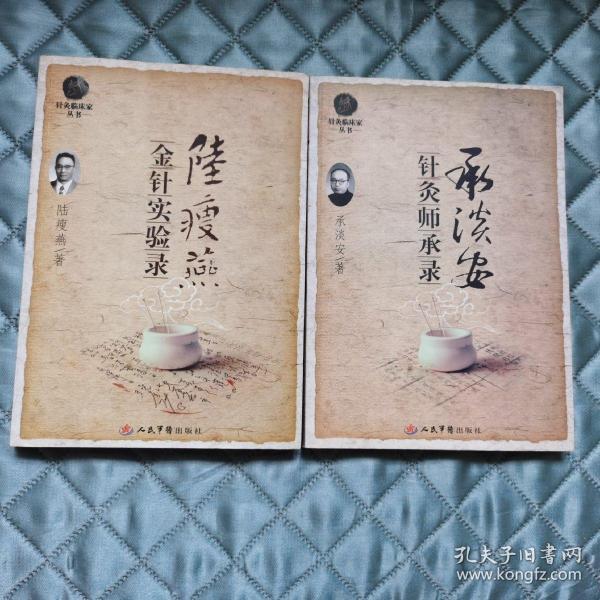 针灸临床家
丛书
陸瘦燕
金针实验录
陆瘦燕/著
人民军医出版社
针灸临床家
丛书
承淡安
针灸师承录
承淡安/著
人民军医出版社
孔夫子旧书网
www.kongfz.com